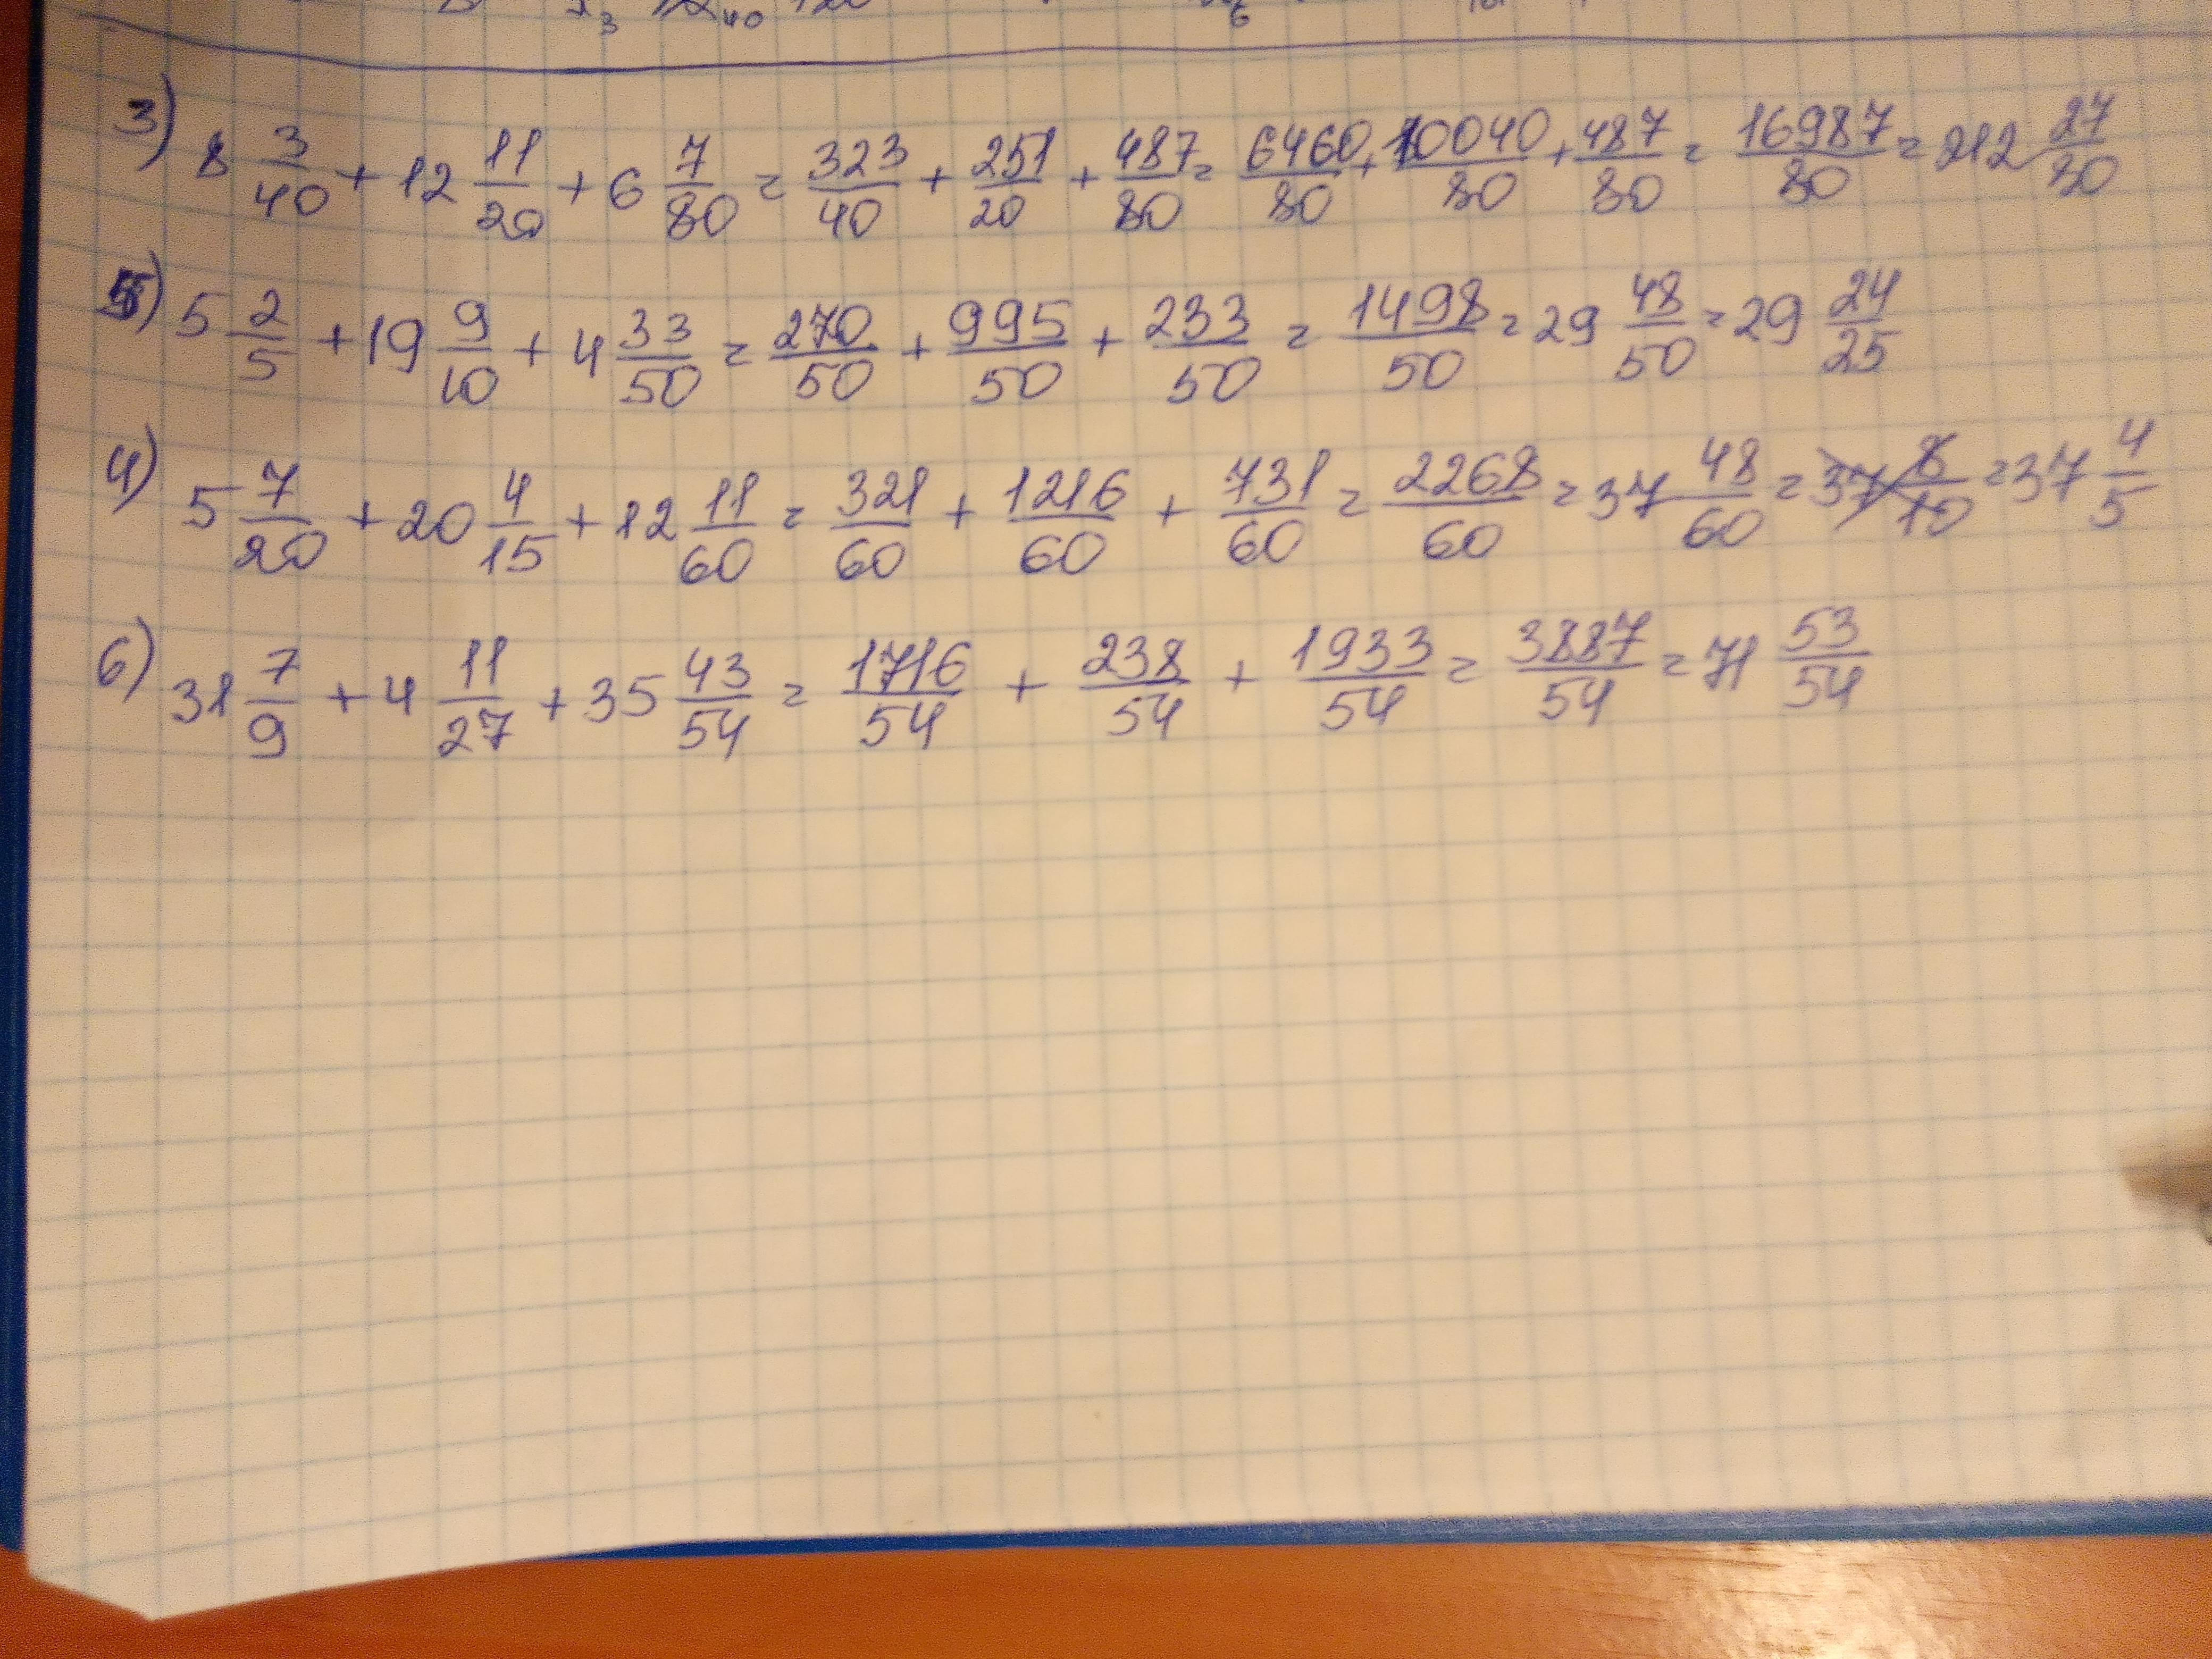 3) 8 3/40 + 12 11/20 + 6 7/80 = 323/40 + 251/20 + 487/80 = 6460/80 + 10040/80 + 487/80 = 16987/80 = 212 27/80
5) 5 2/5 + 19 9/10 + 4 33/50 = 270/50 + 995/50 + 233/50 = 1498/50 = 29 48/50 = 29 24/25
4) 5 7/20 + 20 4/15 + 12 11/60 = 321/60 + 1216/60 + 731/60 = 2268/60 = 37 48/60 = 37 8/10 = 37 4/5
6) 31 7/9 + 4 11/27 + 35 43/54 = 1716/54 + 238/54 + 1933/54 = 3887/54 = 71 53/54